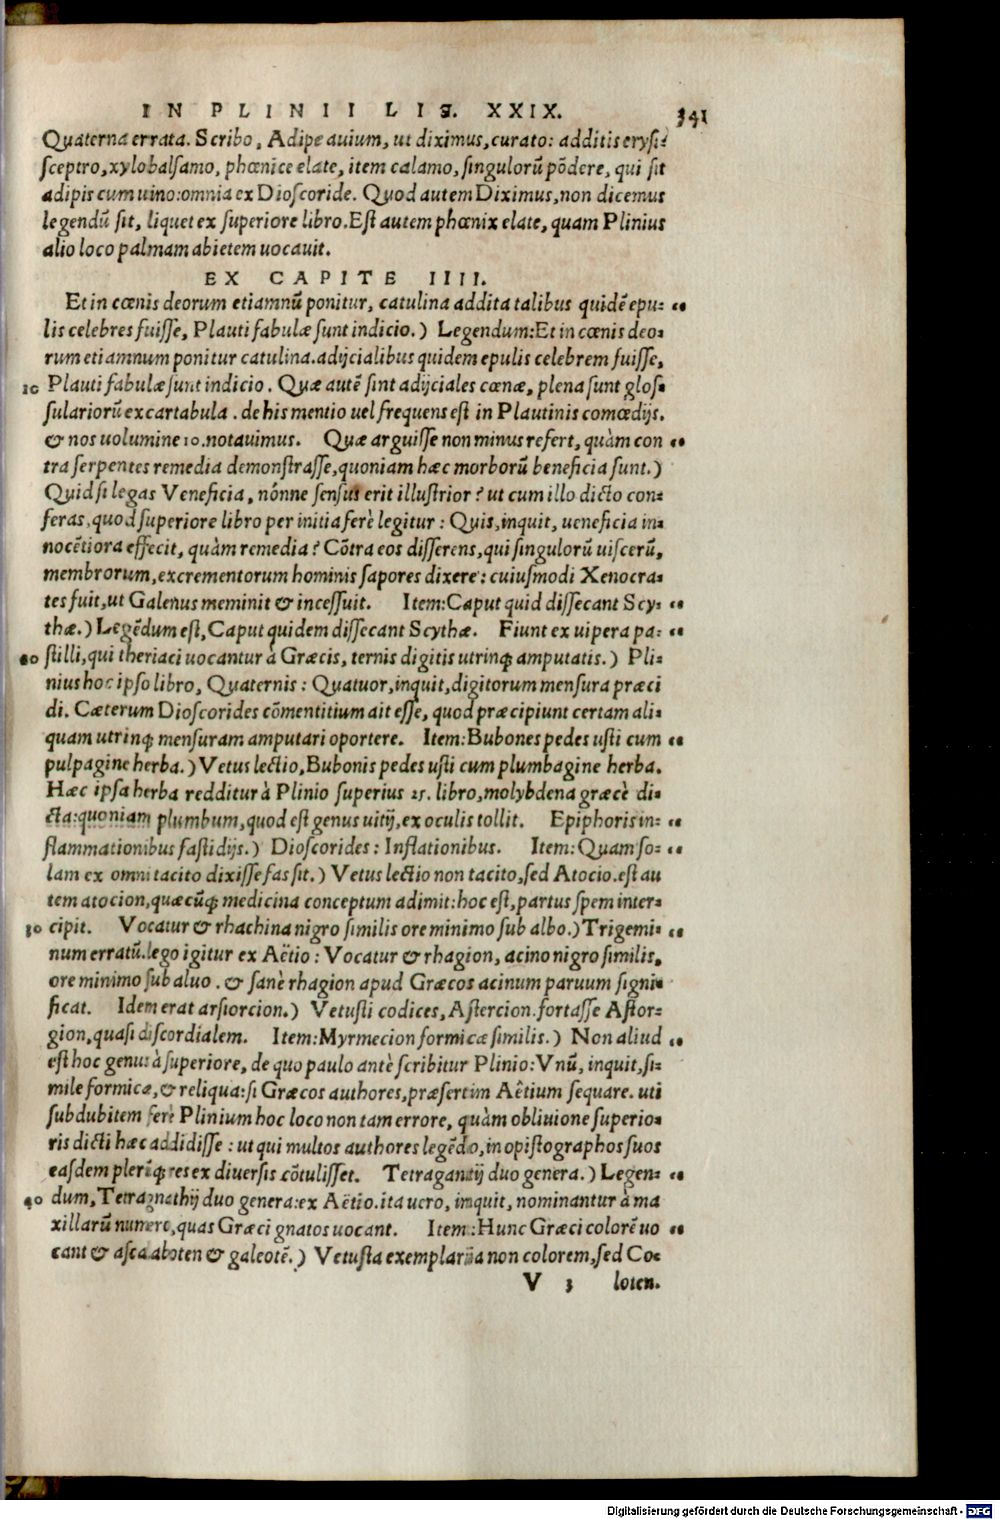 IN PLINII LIB. XXIX. 341
Quaterna errata. Scribo, Adipe auium, ut diximus, curato: additis erysi-
sceptro, xylobalsamo, phœnice elate, item calamo, singulorũ põdere, qui sit
adipis cum uino: omnia ex Dioscoride. Quod autem Diximus, non dicemus
legendũ sit, liquet ex superiore libro. Est autem phœnix elate, quam Plinius
alio loco palmam abietem uocauit.
EX CAPITE IIII.
Et in cœnis deorum etiamnũ ponitur, catulina addita talibus quidẽ epu- „
lis celebres fuisse, Plauti fabulæ sunt indicio.) Legendum: Et in cœnis deo-
rum etiamnum ponitur catulina. adijcialibus quidem epulis celebrem fuisse,
10 Plauti fabulæ sunt indicio. Quæ autẽ sint adijciales cœnæ, plena sunt glos-
sulariorũ ex cartabula. de his mentio uel frequens est in Plautinis comœdijs.
& nos uolumine 10. notauimus. Quæ arguisse non minus refert, quàm con „
tra serpentes remedia demonstrasse, quoniam hæc morborũ beneficia sunt.)
Quid si legas Veneficia, nónne sensus erit illustrior? ut cum illo dicto con-
feras, quod superiore libro per initia ferè legitur: Quis, inquit, ueneficia in-
nocẽtiora effecit, quàm remedia? Cõtra eos disserens, qui singulorũ uiscerũ,
membrorum, excrementorum hominis sapores dixere: cuiusmodi Xenocra-
tes fuit, ut Galenus meminit & incessuit. Item: Caput quid dissecant Scy- „
thæ.) Legẽdum est, Caput quidem dissecant Scythæ. Fiunt ex uipera pa- „
20 stilli, qui theriaci uocantur à Græcis, ternis digitis utrinq; amputatis.) Pli-
nius hoc ipso libro, Quaternis: Quatuor, inquit, digitorum mensura præci
di. Cæterum Dioscorides cõmentitium ait esse, quod præcipiunt certam ali-
quam utrinq; mensuram amputari oportere. Item: Bubones pedes usti cum „
pulpagine herba.) Vetus lectio, Bubonis pedes usti cum plumbagine herba.
Hæc ipsa herba redditur à Plinio superius 25. libro, molybdena græcè di-
cta: quoniam plumbum, quod est genus uitij, ex oculis tollit. Epiphoris in- „
flammationibus fastidijs.) Dioscorides: Inflationibus. Item: Quam so- „
lam ex omni tacito dixisse fas sit.) Vetus lectio non tacito, sed Atocio. est au
tem atocion, quæcũq; medicina conceptum adimit: hoc est, partus spem inter-
30 cipit. Vocatur & rhachina nigro similis ore minimo sub albo.) Trigemi- „
num erratũ. lego igitur ex Aëtio: Vocatur & rhagion, acino nigro similis,
ore minimo sub aluo. & sanè rhagion apud Græcos acinum paruum signi-
ficat. Idem erat arsiorcion.) Vetusti codices, Astercion. fortasse Astor-
gion, quasi discordialem. Item: Myrmecion formicæ similis.) Non aliud „
est hoc genus à superiore, de quo paulo antè scribitur Plinio: Vnũ, inquit, si-
mile formicæ, & reliqua: si Græcos authores, præsertim Aëtium sequare. uti
subdubitem ferè Plinium hoc loco non tam errore, quàm obliuione superio-
ris dicti hæc addidisse: ut qui multos authores legẽdo, in opistographos suos
easdem plerũq; res ex diuersis cõtulisset. Tetragantij duo genera.) Legen- „
40 dum, Tetragnathij duo genera: ex Aëtio. ita uero, inquit, nominantur à ma
xillarũ numero, quas Græci gnatos uocant. Item: Hunc Græci colorẽ uo „
cant & ascaaboten & galeotẽ.) Vetusta exemplaria non colorem, sed Co-
V 3 loten.
Digitalisierung gefördert durch die Deutsche Forschungsgemeinschaft - DFG